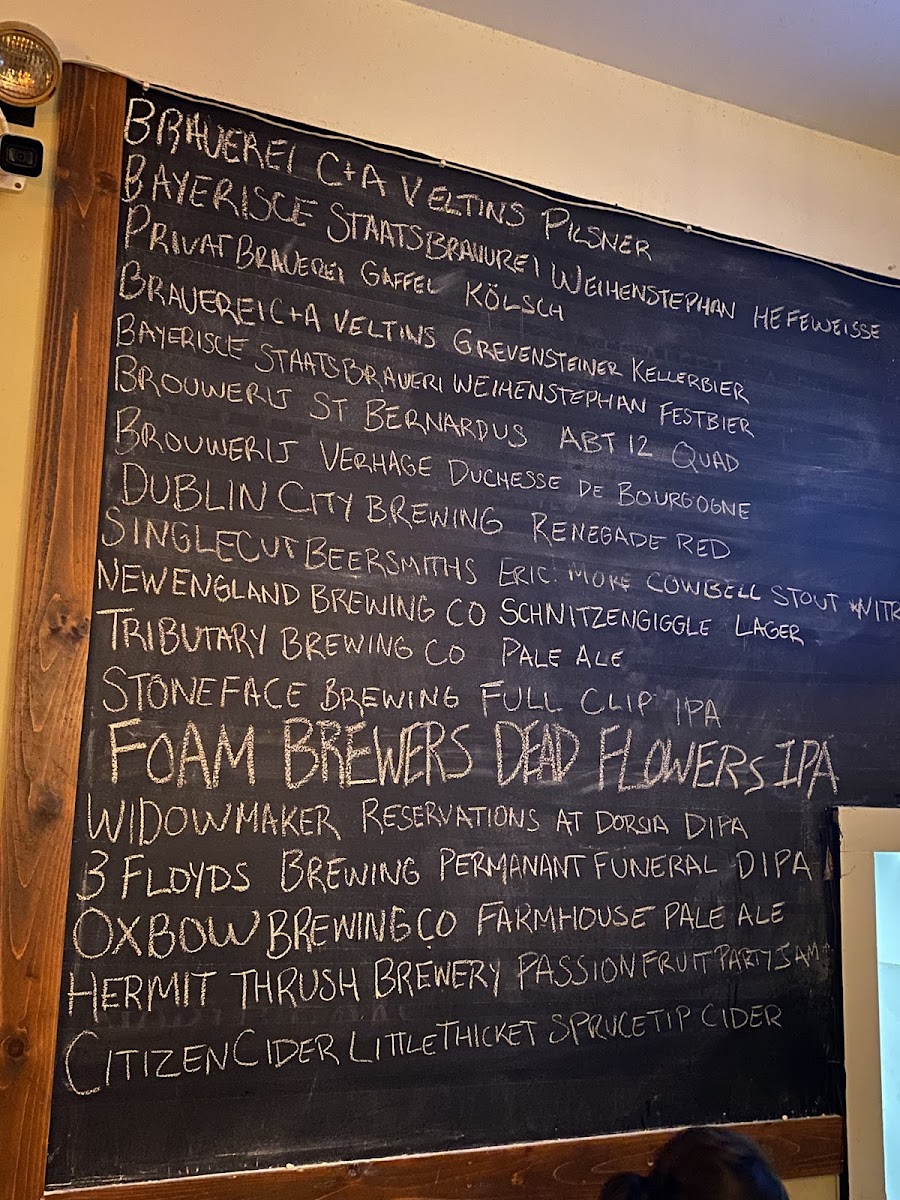 BRAUEREI C+A VELTINS PILSNER
BAYERISCE STAATSBRAUREI WEIHENSTEPHAN HEFEWEISSE
PRIVATBRAUEREI GAFFEL KÖLSCH
BRAUEREI C+A VELTINS GREVENSTEINER KELLERBIER
BAYERISCE STAATSBRAUERI WEIHENSTEPHAN FESTBIER
BROUWERIJ ST BERNARDUS ABT 12 QUAD
BROUWERIJ VERHAGE DUCHESSE DE BOURGOGNE
DUBLIN CITY BREWING RENEGADE RED
SINGLECUT BEERSMITHS ERIC: MORE COWBELL STOUT *NITR
NEW ENGLAND BREWING CO SCHNITZENGIGGLE LAGER
TRIBUTARY BREWING CO PALE ALE
STONEFACE BREWING FULL CLIP IPA
FOAM BREWERS DEAD FLOWERS IPA
WIDOWMAKER RESERVATIONS AT DORSIA DIPA
3 FLOYDS BREWING PERMANANT FUNERAL DIPA
OXBOW BREWING CO FARMHOUSE PALE ALE
HERMIT THRUSH BREWERY PASSIONFRUIT PARTY JAM
CITIZEN CIDER LITTLE THICKET SPRUCE TIP CIDER